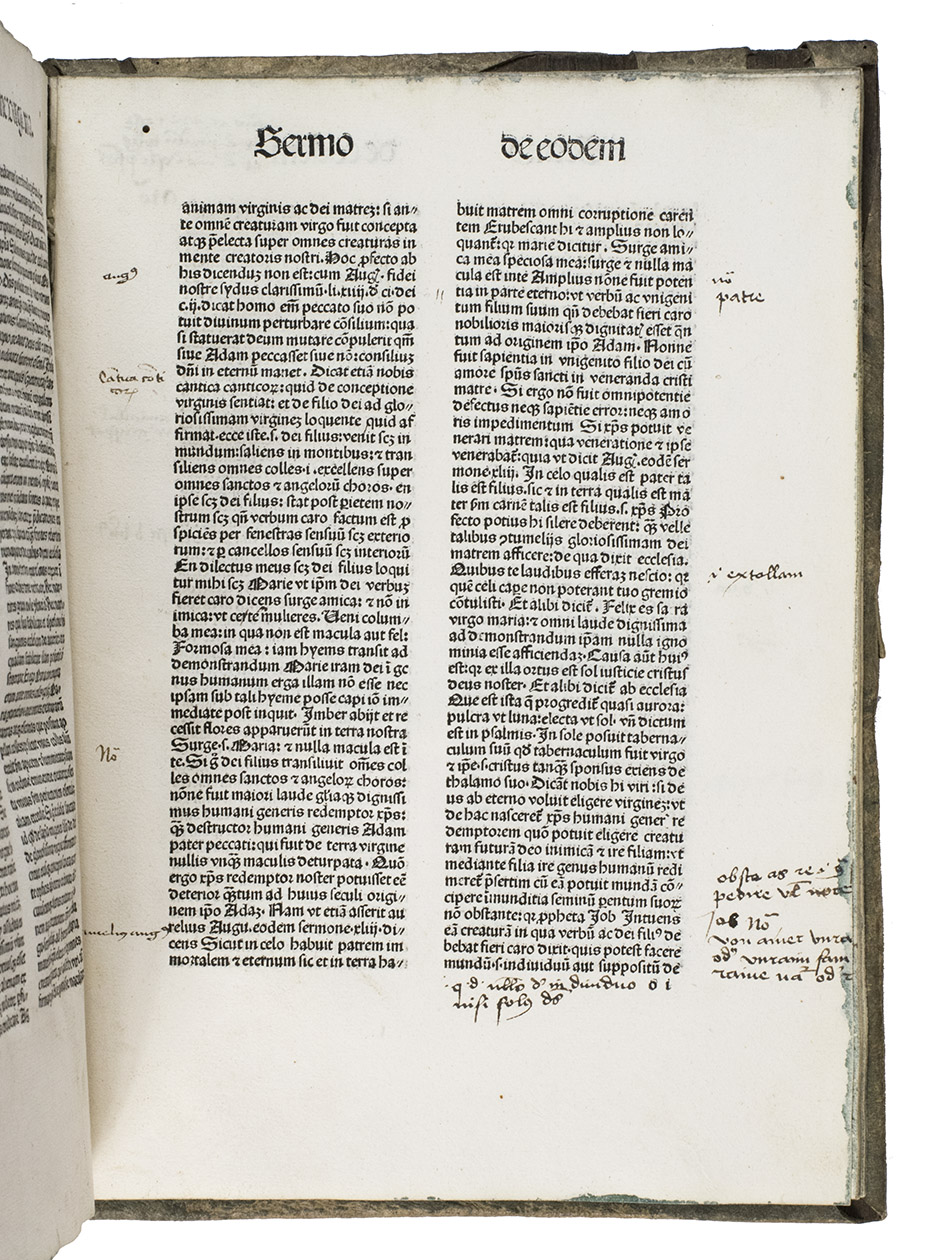 Sermo
de eodem
animam virginis ac dei matreʒ: si an⸗
te omnē creaturam virgo fuit concepta
atqʒ p̄electa super omnes creaturas in
mente creatoris nostri. Hoc ꝓfecto ab
his dicenduʒ non est: cum Augꝰ. fidei
nostre sydus clarissimū. li. xiiij. d̄ ci. dei
c. ij. dicat homo em̄ peccato suo nō po
tuit diuinum perturbare cōsilium: qua
si statuerat deum mutare cōpulerit qm̄
siue Adam peccasset siue nō: consiliuʒ
dn̄i in eternū manet. Dicat etiā nobis
cantica canticoꝝ: quid de conceptione
virginis sentiat: et de filio dei ad glo⸗
riosissimam virgineʒ loquente quid af
firmat. ecce iste. s. dei filius: venit scʒ in
mundum: saliens in montibus: ⁊ tran
siliens omnes colles. i. excellens super
omnes sanctos ⁊ angelorū choros. en
ipse scʒ dei filius: stat post ꝑietem no⸗
strum scʒ qn̄ verbum caro factum est ꝓ
spiciēs per fenestras sensuū scʒ exterio
rum: ⁊ ꝑ cancellos sensuū scʒ interiorū
En dilectus meus scʒ dei filius loqui
tur mihi scʒ Marie vt ip̄m dei verbuʒ
fieret caro dicens surge amica: ⁊ nō in
imica: vt cetre mulieres. Ueni colum⸗
ba mea: in qua non est macula aut fel:
Formosa mea: iam hyems transit ad
demōstrandum Marie iram dei ī ge
nus humanum erga illam nō esse nec
ipsam sub tali hyeme posse capi iō im⸗
mediate post inquit. Imber abijt et re
cessit flores apparuerūt in terra nostra
Surge. s. Maria: ⁊ nulla macula est ī
te. Si g̊ dei filius transiliuit om̄es col
les omnes sanctos ⁊ angeloꝝ choros:
nōne fuit maiori laude gl̄iaqʒ dignissi
mus humani generis redemptor xp̄s:
qʒ̄ destructor humani generis Adam
pater peccati: qui fuit de terra virgine
nullis vnqʒ̄ maculis deturpata. Quō
ergo xp̄s redemptor noster potuisset eē
deterior qʒ̄tum ad huius seculi origi⸗
nem ip̄o Adaʒ. Nam vt etiā asserit au
relius Augu. eodem sermone. xliij. di⸗
cens Sicut in celo habuit patrem im
mortalem ⁊ eternum sic et in terra ha⸗
buit matrem omni corruptione caren
tem Erubescant hi ⁊ amplius non lo⸗
quant᷑: qꝛ marie dicitur. Surge ami⸗
ca mea speciosa mea: surge ⁊ nulla ma
cula est inte Amplius nōne fuit poten
tia in parte eterno: vt verbū ac vnigeni
tum filium suum qn̄ debebat fieri caro
nobilioris maiorisqʒ dignitatꝭ esset qn̄
tum ad originem ip̄o Adam. Nonne
fuit sapientia in vnigenito filio dei cū
amore sp̄us sancti in veneranda cristi
matre. Si ergo nō fuit omnipotentie
defectus neqʒ sapiētie error: neqʒ amo
ris impedimentum Si xp̄s potuit ve
nerari matrem: qua veneratione ⁊ ipse
venerabat᷑: quia vt dicit Augꝰ. eodē ser
mone. xliij. In celo qualis est pater ta
lis est filius. sic ⁊ in terra qualis est ma
ter ẜm carnē talis est filius. s. xp̄s Pro
fecto potius hi silere deberent: qʒ̄ velle
talibus ꝯtumelijs gloriosissimam dei
matrem afficere: de qua dixit ecclesia.
Quibus te laudibus efferaʒ nescio: qꝛ
quē celi cape non poterant tuo gremio
cōtulisti. Et alibi dicit᷑. Felix es sa ra
virgo maria: ⁊ omni laude dignissima
ad demonstrandum ip̄am nulla igno
minia esse afficiendaʒ. Causa aūt huiꝰ
est: qꝛ ex illa ortus est sol iusticie cristus
deus noster. Et alibi dicit᷑ ab ecclesia
Que est ista q̄ progredit᷑ quasi aurora:
pulcra vt luna: electa vt sol. vn̄ dictum
est in psalmis. In sole posuit taberna⸗
culum suū qd̄ tabernaculum fuit virgo
⁊ ip̄e. s. cristus tanqʒ̄ sponsus exiens de
thalamo suo. Dicāt nobis hi viri: si de
us ab eterno voluit eligere virgineʒ: vt
de hac nasceret᷑ xp̄s humani generꝭ re
demptorem quō potuit eligere creatu
ram futurā deo inimicā ⁊ ire filiam: vt
mediante filia ire genus humanū redi
meret᷑ p̄sertim cū eā potuit mundā cō⸗
cipere īmunditia seminū ꝑentum suoꝝ
nō obstante: qꝛ ꝓpheta Job Intuens
eā creaturā in qua verbū ac dei filiꝰ de
bebat fieri caro dixit. quis potest facere
mundū. s. indiuiduū aut suppositū de
augꝰ
Nō
nō
patre
extollam
nisi solꝰ ds